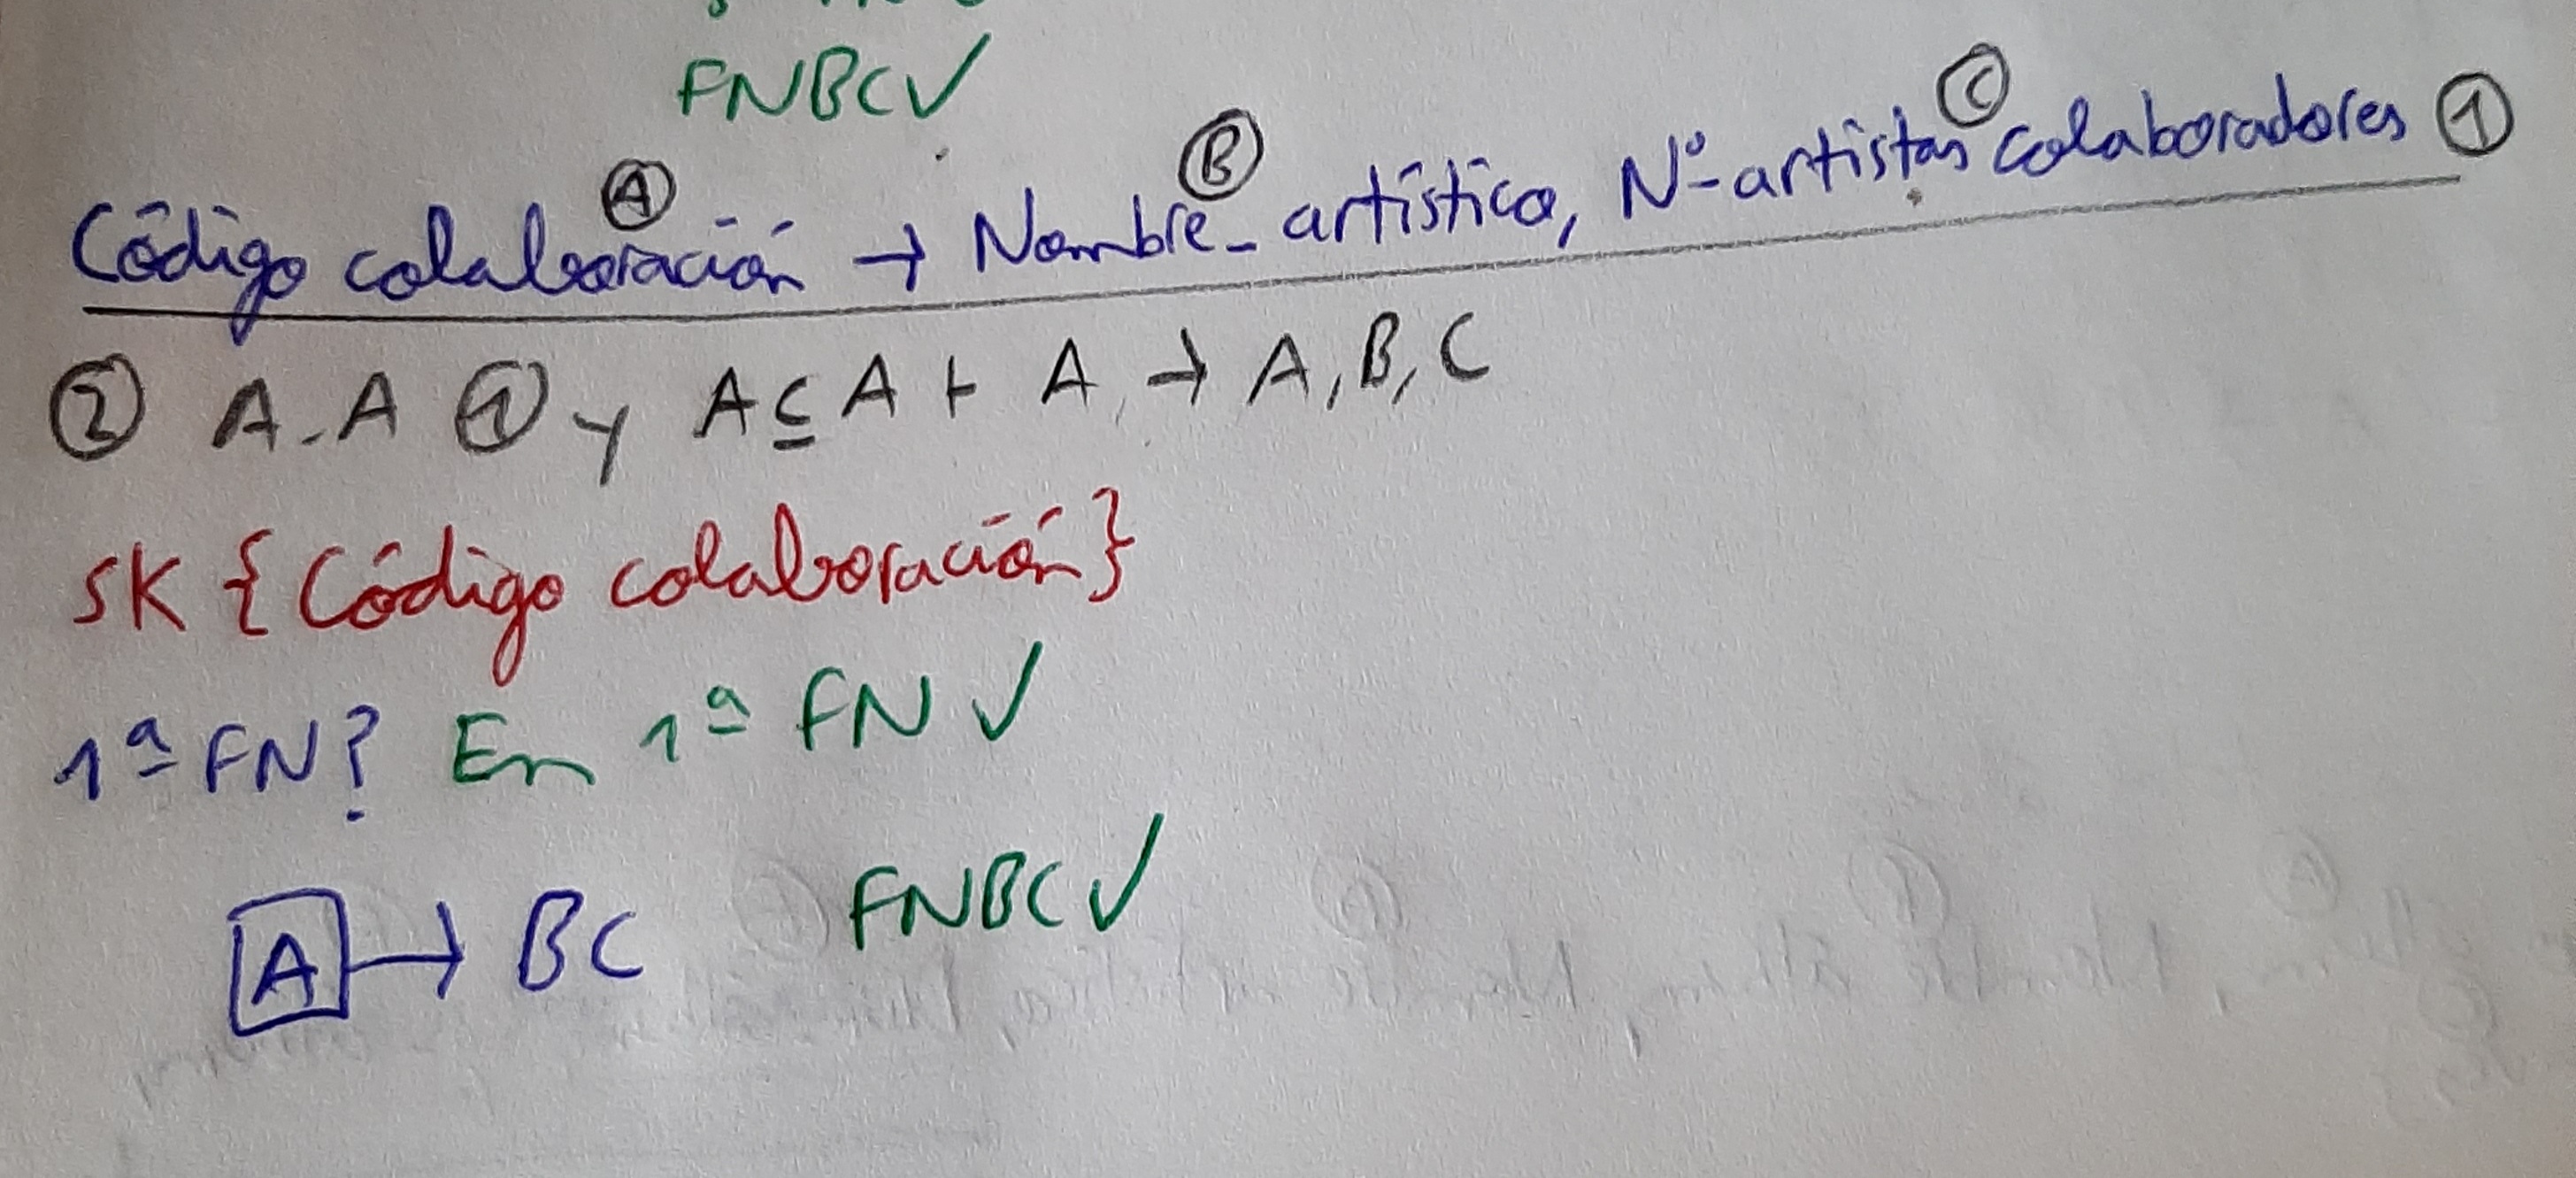 FNBC ✓
Código colaboración Ⓐ → Nombre_artístico Ⓑ, Nº artistas colaboradores Ⓒ ①
② A.A ① y A ⊆ A ⊢ A → A, B, C
SK {Código colaboración}
1ª FN? En 1ª FN ✓
A → BC FNBC ✓